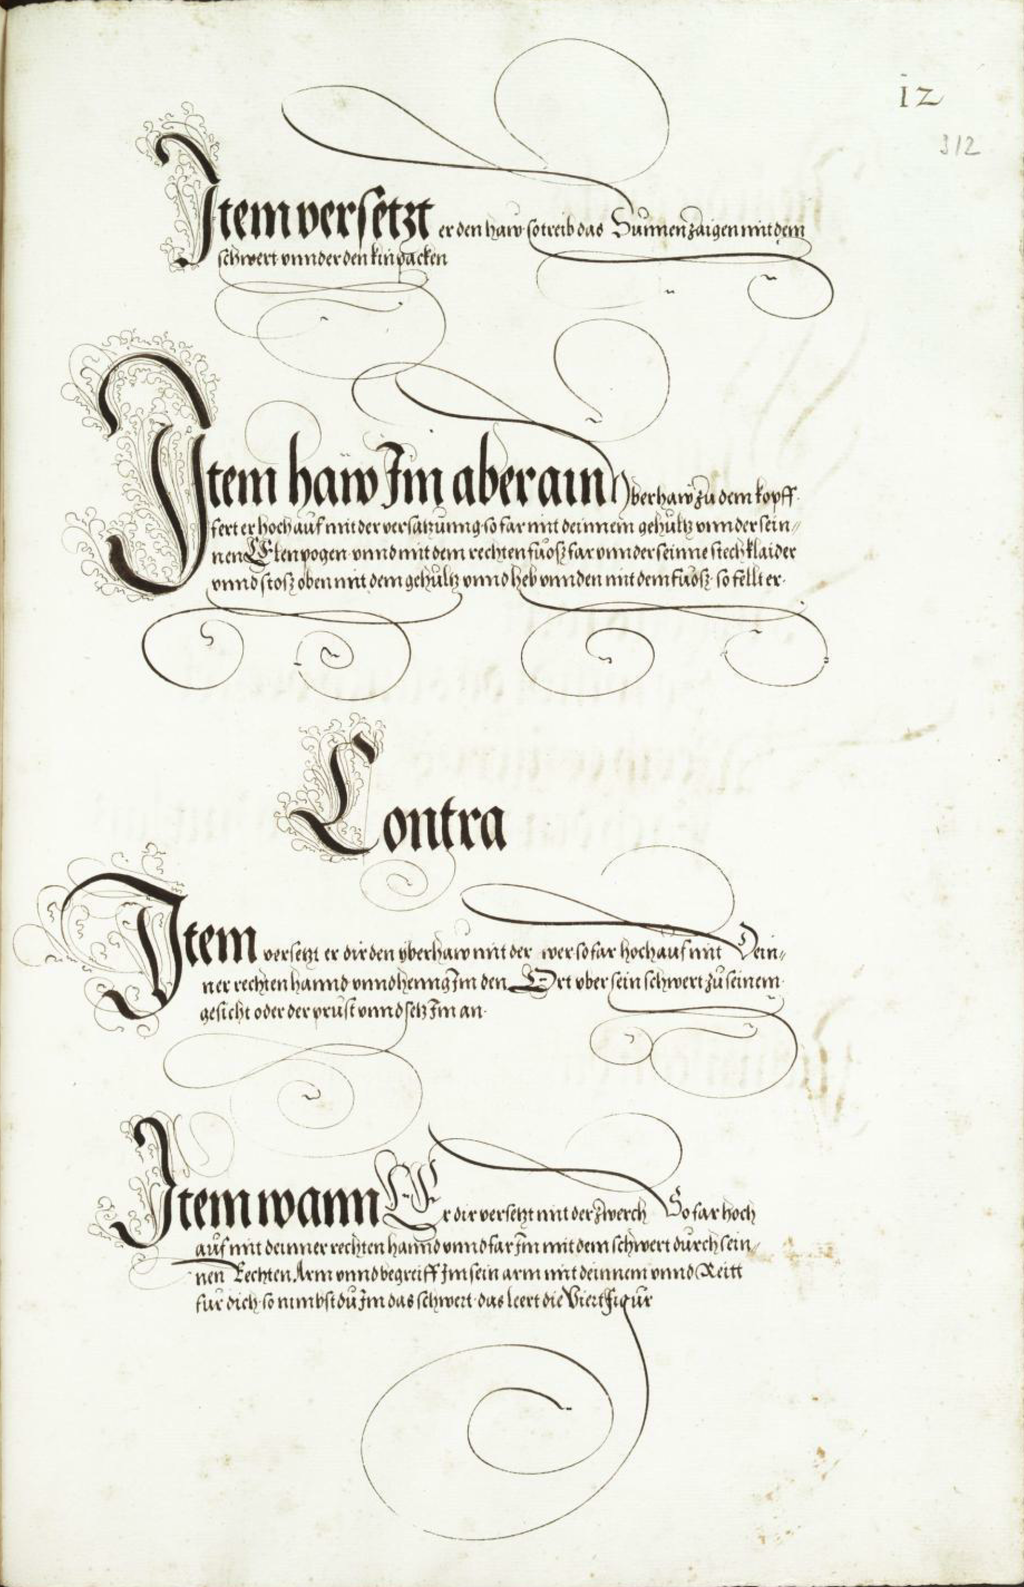 12
312
Item versetzt er den haw so treib das Sunnen zaigen mit dem
schwert vnnder den kinpacken
Item haw Im aber ain Vberhaw zu dem kopff.
fert er hoch auf mit der versatzunng so far mit deinnem gehultz vnnder sein„
nen Elenpogen vnnd mit dem rechten fuosz far vnnder seinne stechklaider
vnnd stosz oben mit dem gehultz vnnd heb vnnden mit dem fuosz· so fellt er·
Contra
Item versetzt er dir den yberhaw mit der wer so far hoch auf mit Dein„
ner rechten hannd vnnd henng Im den Ort vber sein schwert zu seinem
gesicht oder der prust vnnd setz Im an·
Item wann Er dir versetzt mit der zwerch So far hoch
auf mit deinner rechten hannd vnnd far Im mit dem schwert durch sein„
nen Rechten Arm vnnd begreiff Im sein arm mit deinnem vnnd Reitt
fur dich· so nimbst du Im das schwert· das leert die Viert figur